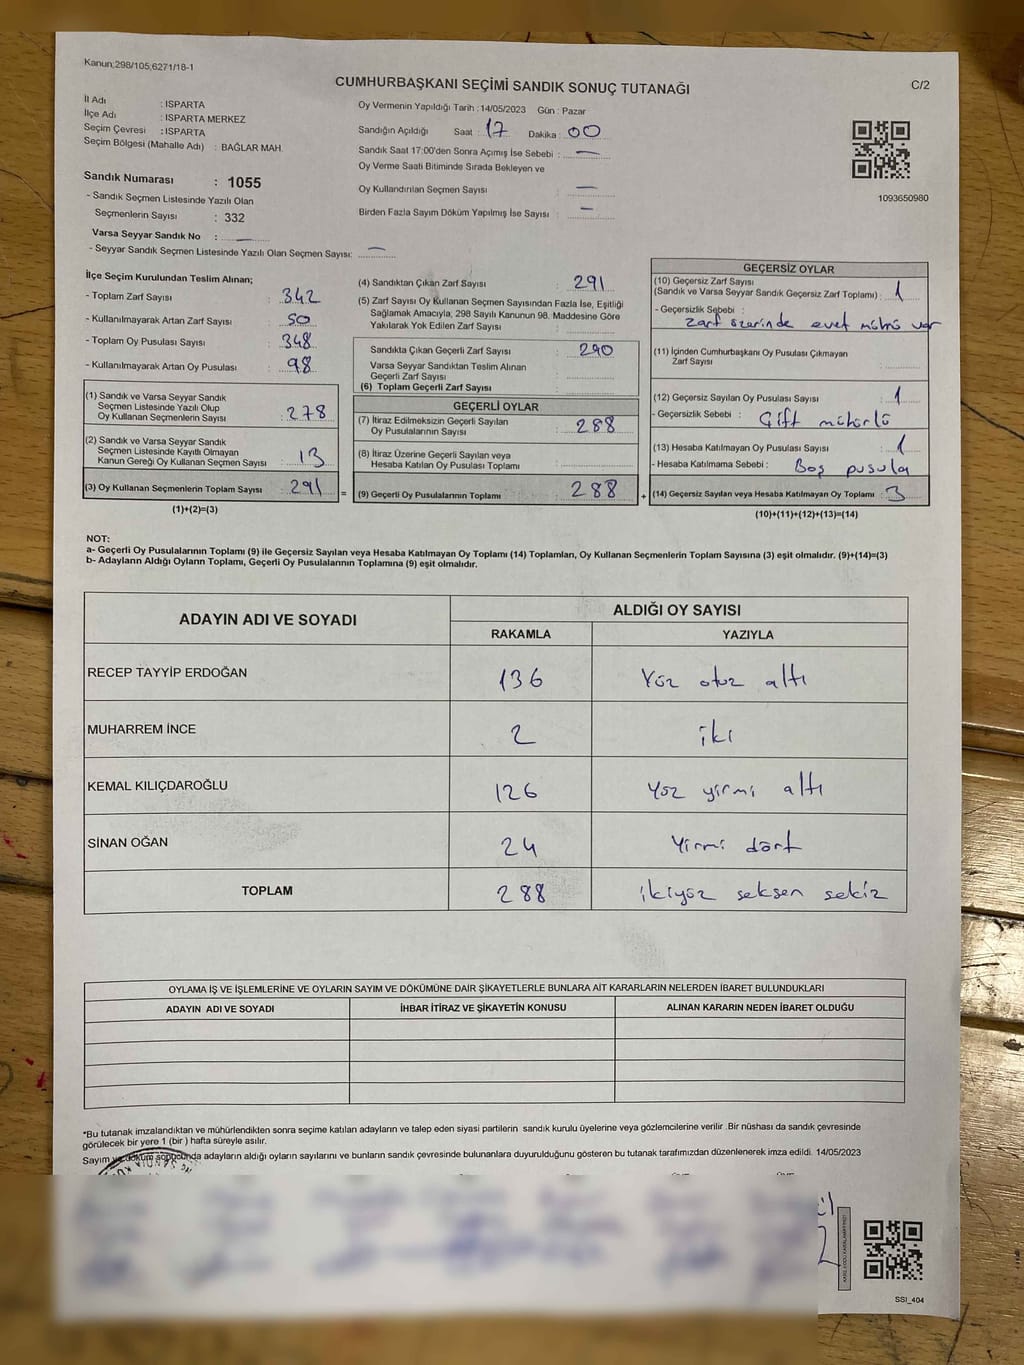 Kanun;298/105,6271/18-1
CUMHURBAŞKANI SEÇİMİ SANDIK SONUÇ TUTANAĞI
C/2
İl Adı : ISPARTA
İlçe Adı : ISPARTA MERKEZ
Seçim Çevresi : ISPARTA
Seçim Bölgesi (Mahalle Adı) : BAĞLAR MAH.
Sandık Numarası : 1055
- Sandık Seçmen Listesinde Yazılı Olan
Seçmenlerin Sayısı : 332
Varsa Seyyar Sandık No : —
- Seyyar Sandık Seçmen Listesinde Yazılı Olan Seçmen Sayısı: —
Oy Vermenin Yapıldığı Tarih : 14/05/2023 Gün : Pazar
Sandığın Açıldığı Saat : 17 Dakika : 00
Sandık Saat 17:00'den Sonra Açımış İse Sebebi : —
Oy Verme Saati Bitiminde Sırada Bekleyen ve
Oy Kullandırılan Seçmen Sayısı —
Birden Fazla Sayım Döküm Yapılmış İse Sayısı : —
1093650980
İlçe Seçim Kurulundan Teslim Alınan;
- Toplam Zarf Sayısı : 342
- Kullanılmayarak Artan Zarf Sayısı : 50
- Toplam Oy Pusulası Sayısı : 348
- Kullanılmayarak Artan Oy Pusulası : 98
(1) Sandık ve Varsa Seyyar Sandık
Seçmen Listesinde Yazılı Olup
Oy Kullanan Seçmenlerin Sayısı : 278
(2) Sandık ve Varsa Seyyar Sandık
Seçmen Listesinde Kayıtlı Olmayan
Kanun Gereği Oy Kullanan Seçmen Sayısı : 13
(3) Oy Kullanan Seçmenlerin Toplam Sayısı : 291
(1)+(2)=(3)
(4) Sandıktan Çıkan Zarf Sayısı : 291
(5) Zarf Sayısı Oy Kullanan Seçmen Sayısından Fazla İse, Eşitliği
Sağlamak Amacıyla, 298 Sayılı Kanunun 98. Maddesine Göre
Yakılarak Yok Edilen Zarf Sayısı :
Sandıkta Çıkan Geçerli Zarf Sayısı : 290
Varsa Seyyar Sandıktan Teslim Alınan
Geçerli Zarf Sayısı :
(6) Toplam Geçerli Zarf Sayısı :
GEÇERLİ OYLAR
(7) İtiraz Edilmeksizin Geçerli Sayılan
Oy Pusulalarının Sayısı : 288
(8) İtiraz Üzerine Geçerli Sayılan veya
Hesaba Katılan Oy Pusulası Toplamı :
= (9) Geçerli Oy Pusulalarının Toplamı : 288 +
GEÇERSİZ OYLAR
(10) Geçersiz Zarf Sayısı
(Sandık ve Varsa Seyyar Sandık Geçersiz Zarf Toplamı) : 1
- Geçersizlik Sebebi :
zarf üzerinde evet mührü var
(11) İçinden Cumhurbaşkanı Oy Pusulası Çıkmayan
Zarf Sayısı :
(12) Geçersiz Sayılan Oy Pusulası Sayısı : 1
- Geçersizlik Sebebi : Çift mühürlü
(13) Hesaba Katılmayan Oy Pusulası Sayısı : 1
- Hesaba Katılmama Sebebi : Boş pusula
(14) Geçersiz Sayılan veya Hesaba Katılmayan Oy Toplamı : 3
(10)+(11)+(12)+(13)=(14)
NOT:
a- Geçerli Oy Pusulalarının Toplamı (9) ile Geçersiz Sayılan veya Hesaba Katılmayan Oy Toplamı (14) Toplamları, Oy Kullanan Seçmenlerin Toplam Sayısına (3) eşit olmalıdır. (9)+(14)=(3)
b- Adayların Aldığı Oyların Toplamı, Geçerli Oy Pusulalarının Toplamına (9) eşit olmalıdır.
ADAYIN ADI VE SOYADI
ALDIĞI OY SAYISI
RAKAMLA YAZIYLA
RECEP TAYYİP ERDOĞAN 136 Yüz otuz altı
MUHARREM İNCE 2 iki
KEMAL KILIÇDAROĞLU 126 Yüz yirmi altı
SİNAN OĞAN 24 Yirmi dört
TOPLAM 288 ikiyüz seksen sekiz
OYLAMA İŞ VE İŞLEMLERİNE VE OYLARIN SAYIM VE DÖKÜMÜNE DAİR ŞİKAYETLERLE BUNLARA AİT KARARLARIN NELERDEN İBARET BULUNDUKLARI
ADAYIN ADI VE SOYADI İHBAR İTİRAZ VE ŞİKAYETİN KONUSU ALINAN KARARIN NEDEN İBARET OLDUĞU
*Bu tutanak imzalandıktan ve mühürlendikten sonra seçime katılan adayların ve talep eden siyasi partilerin sandık kurulu üyelerine veya gözlemcilerine verilir .Bir nüshası da sandık çevresinde
görülecek bir yere 1 (bir ) hafta süreyle asılır.
Sayım ve döküm sonucunda adayların aldığı oyların sayılarını ve bunların sandık çevresinde bulunanlara duyurulduğunu gösteren bu tutanak tarafımızdan düzenlenerek imza edildi. 14/05/2023
SSI_404